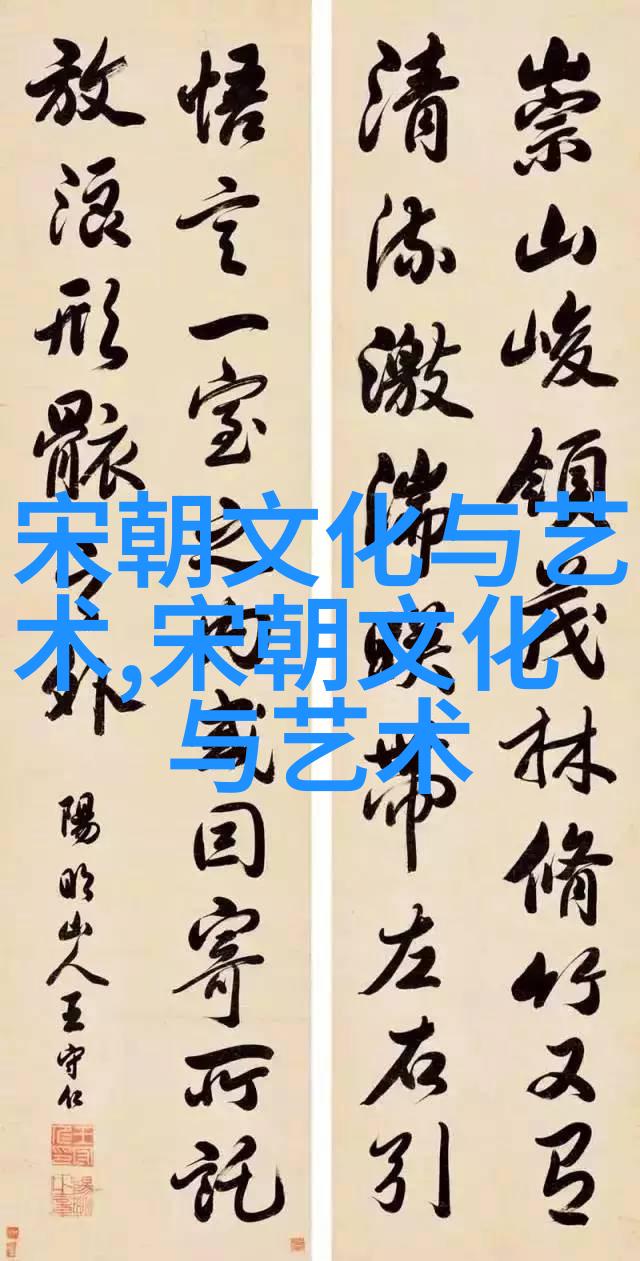 崇山峻領茂林脩竹又有
清流激湍暎帶左右引
悟言一室之内或因寄所託
放浪形骸之外
陽明山人王守仁
宋朝文化与艺
术,宋朝文化
与艺术